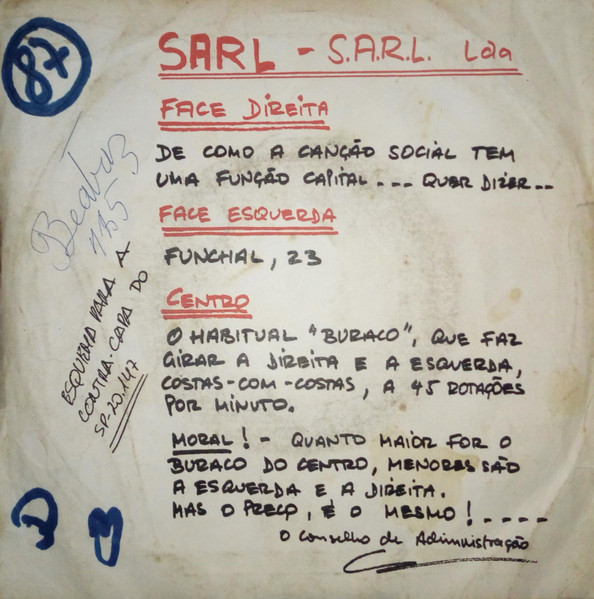 87
SARL - S.A.R.L. Lda
FACE DIREITA
DE COMO A CANÇÃO SOCIAL TEM
UMA FUNÇÃO CAPITAL... QUER DIZER..
FACE ESQUERDA
FUNCHAL, 23
CENTRO
O HABITUAL "BURACO", QUE FAZ
GIRAR A DIREITA E A ESQUERDA,
COSTAS-COM-COSTAS, A 45 ROTAÇÕES
POR MINUTO.
MORAL! - QUANTO MAIOR FOR O
BURACO DO CENTRO, MENORES SÃO
A ESQUERDA E A DIREITA.
MAS O PREÇO, É O MESMO!....
O Conselho de Administração
Beatriz
ESQUEMA PARA A
CONTRA-CAPA DO
SP-20.147